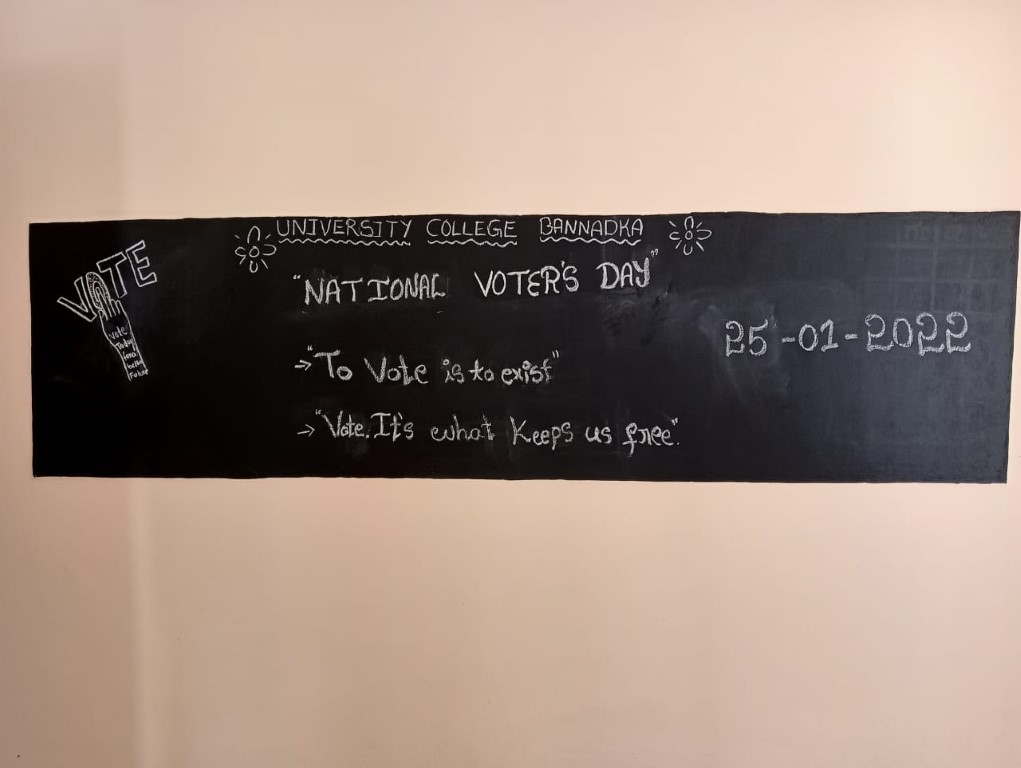 UNIVERSITY COLLEGE BANNADKA
"NATIONAL VOTER'S DAY"
25-01-2022
→"To Vote is to exist"
→"Vote. It's what Keeps us free".
VOTE
Vote
Today
for a
better
Future